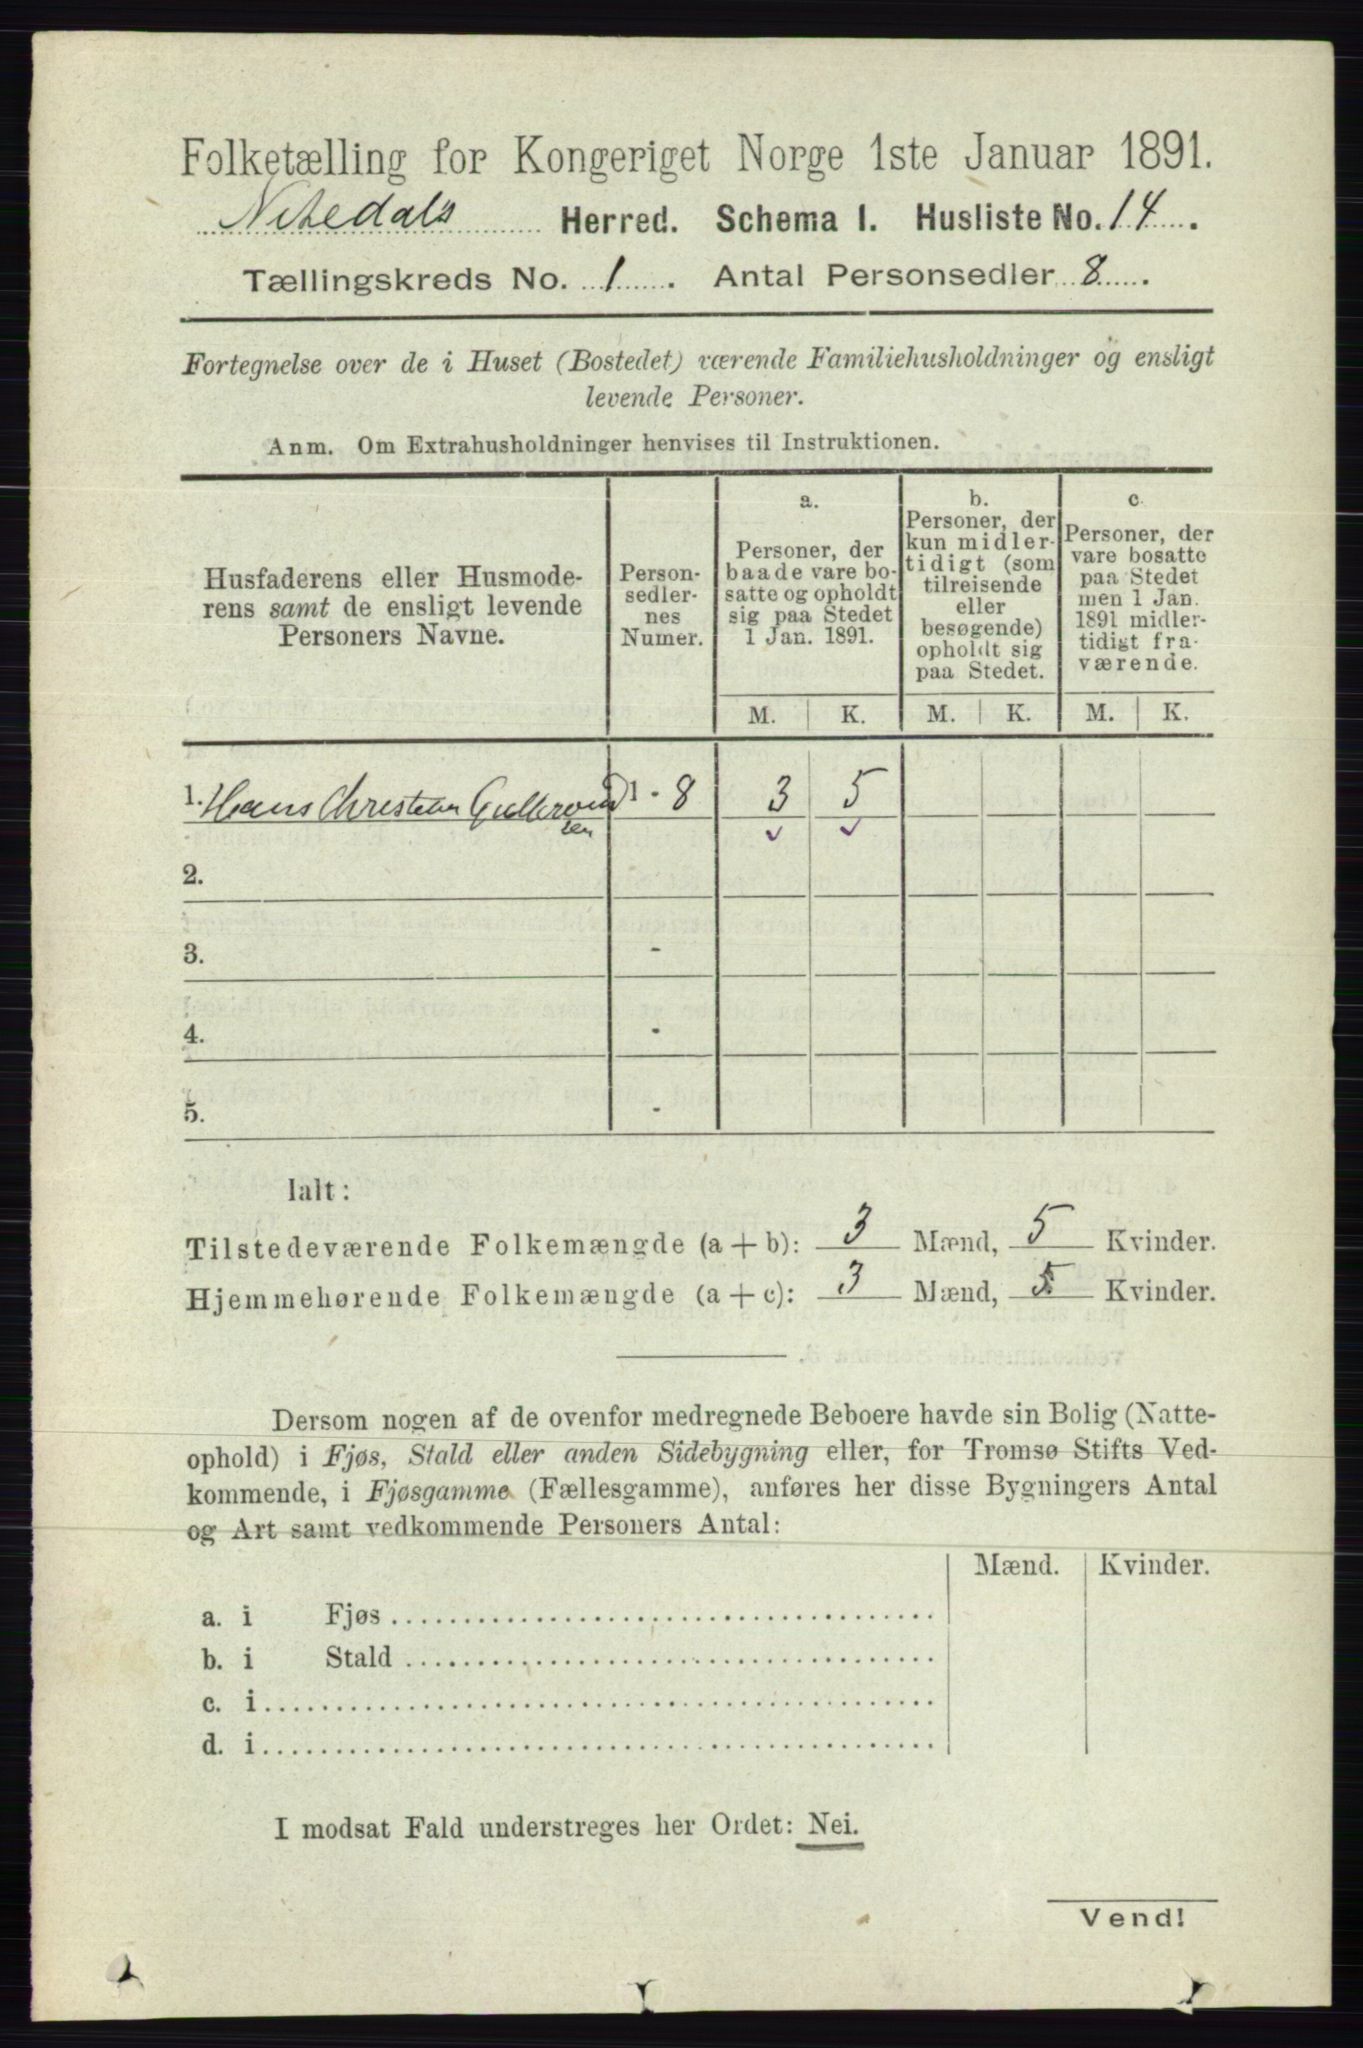 Folketælling for Kongeriget Norge 1ste Januar 1891.
Nitedals Herred. Schema 1. Husliste No. 14.
Tællingskreds No. 1. Antal Personsedler 8.
Fortegnelse over de i Huset (Bostedet) værende Familiehusholdninger og ensligt
levende Personer.
Anm. Om Extrahusholdninger henvises til Instruktionen.
Husfaderens eller Husmode-
rens samt de ensligt levende
Personers Navne.
Person-
sedler-
nes
Numer.
a.
Personer, der
baade vare bo-
satte og opholdt
sig paa Stedet
1 Jan. 1891.
b.
Personer, der
kun midler-
tidigt (som
tilreisende
eller
besøgende)
opholdt sig
paa Stedet.
c.
Personer, der
vare bosatte
paa Stedet
men 1 Jan.
1891 midler-
tidigt fra-
værende.
M. K. M. K. M. K.
1. Hans Christian 1 - 8 3 5
sen
2.
3. -
4. -
5. -
Ialt:
Tilstedeværende Folkemængde (a + b): 3 Mænd, 5 Kvinder.
Hjemmehørende Folkemængde (a + c): 3 Mænd, 5 Kvinder.
Dersom nogen af de ovenfor medregnede Beboere havde sin Bolig (Natte-
ophold) i Fjøs, Stald eller anden Sidebygning eller, for Tromsø Stifts Ved-
kommende, i Fjøsgamme (Fællesgamme), anføres her disse Bygningers Antal
og Art samt vedkommende Personers Antal:
Mænd. Kvinder.
a. i Fjøs
b. i Stald
c. i
d. i
I modsat Fald understreges her Ordet: Nei.
Vend!